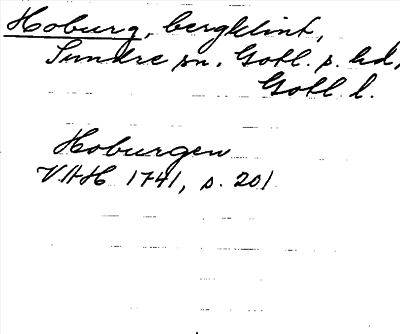 Hoburg, bergklint,
Sundre sn, Gotl. s. hd,
Gotl. l.
Hoburgen
VAH 1741, s. 201